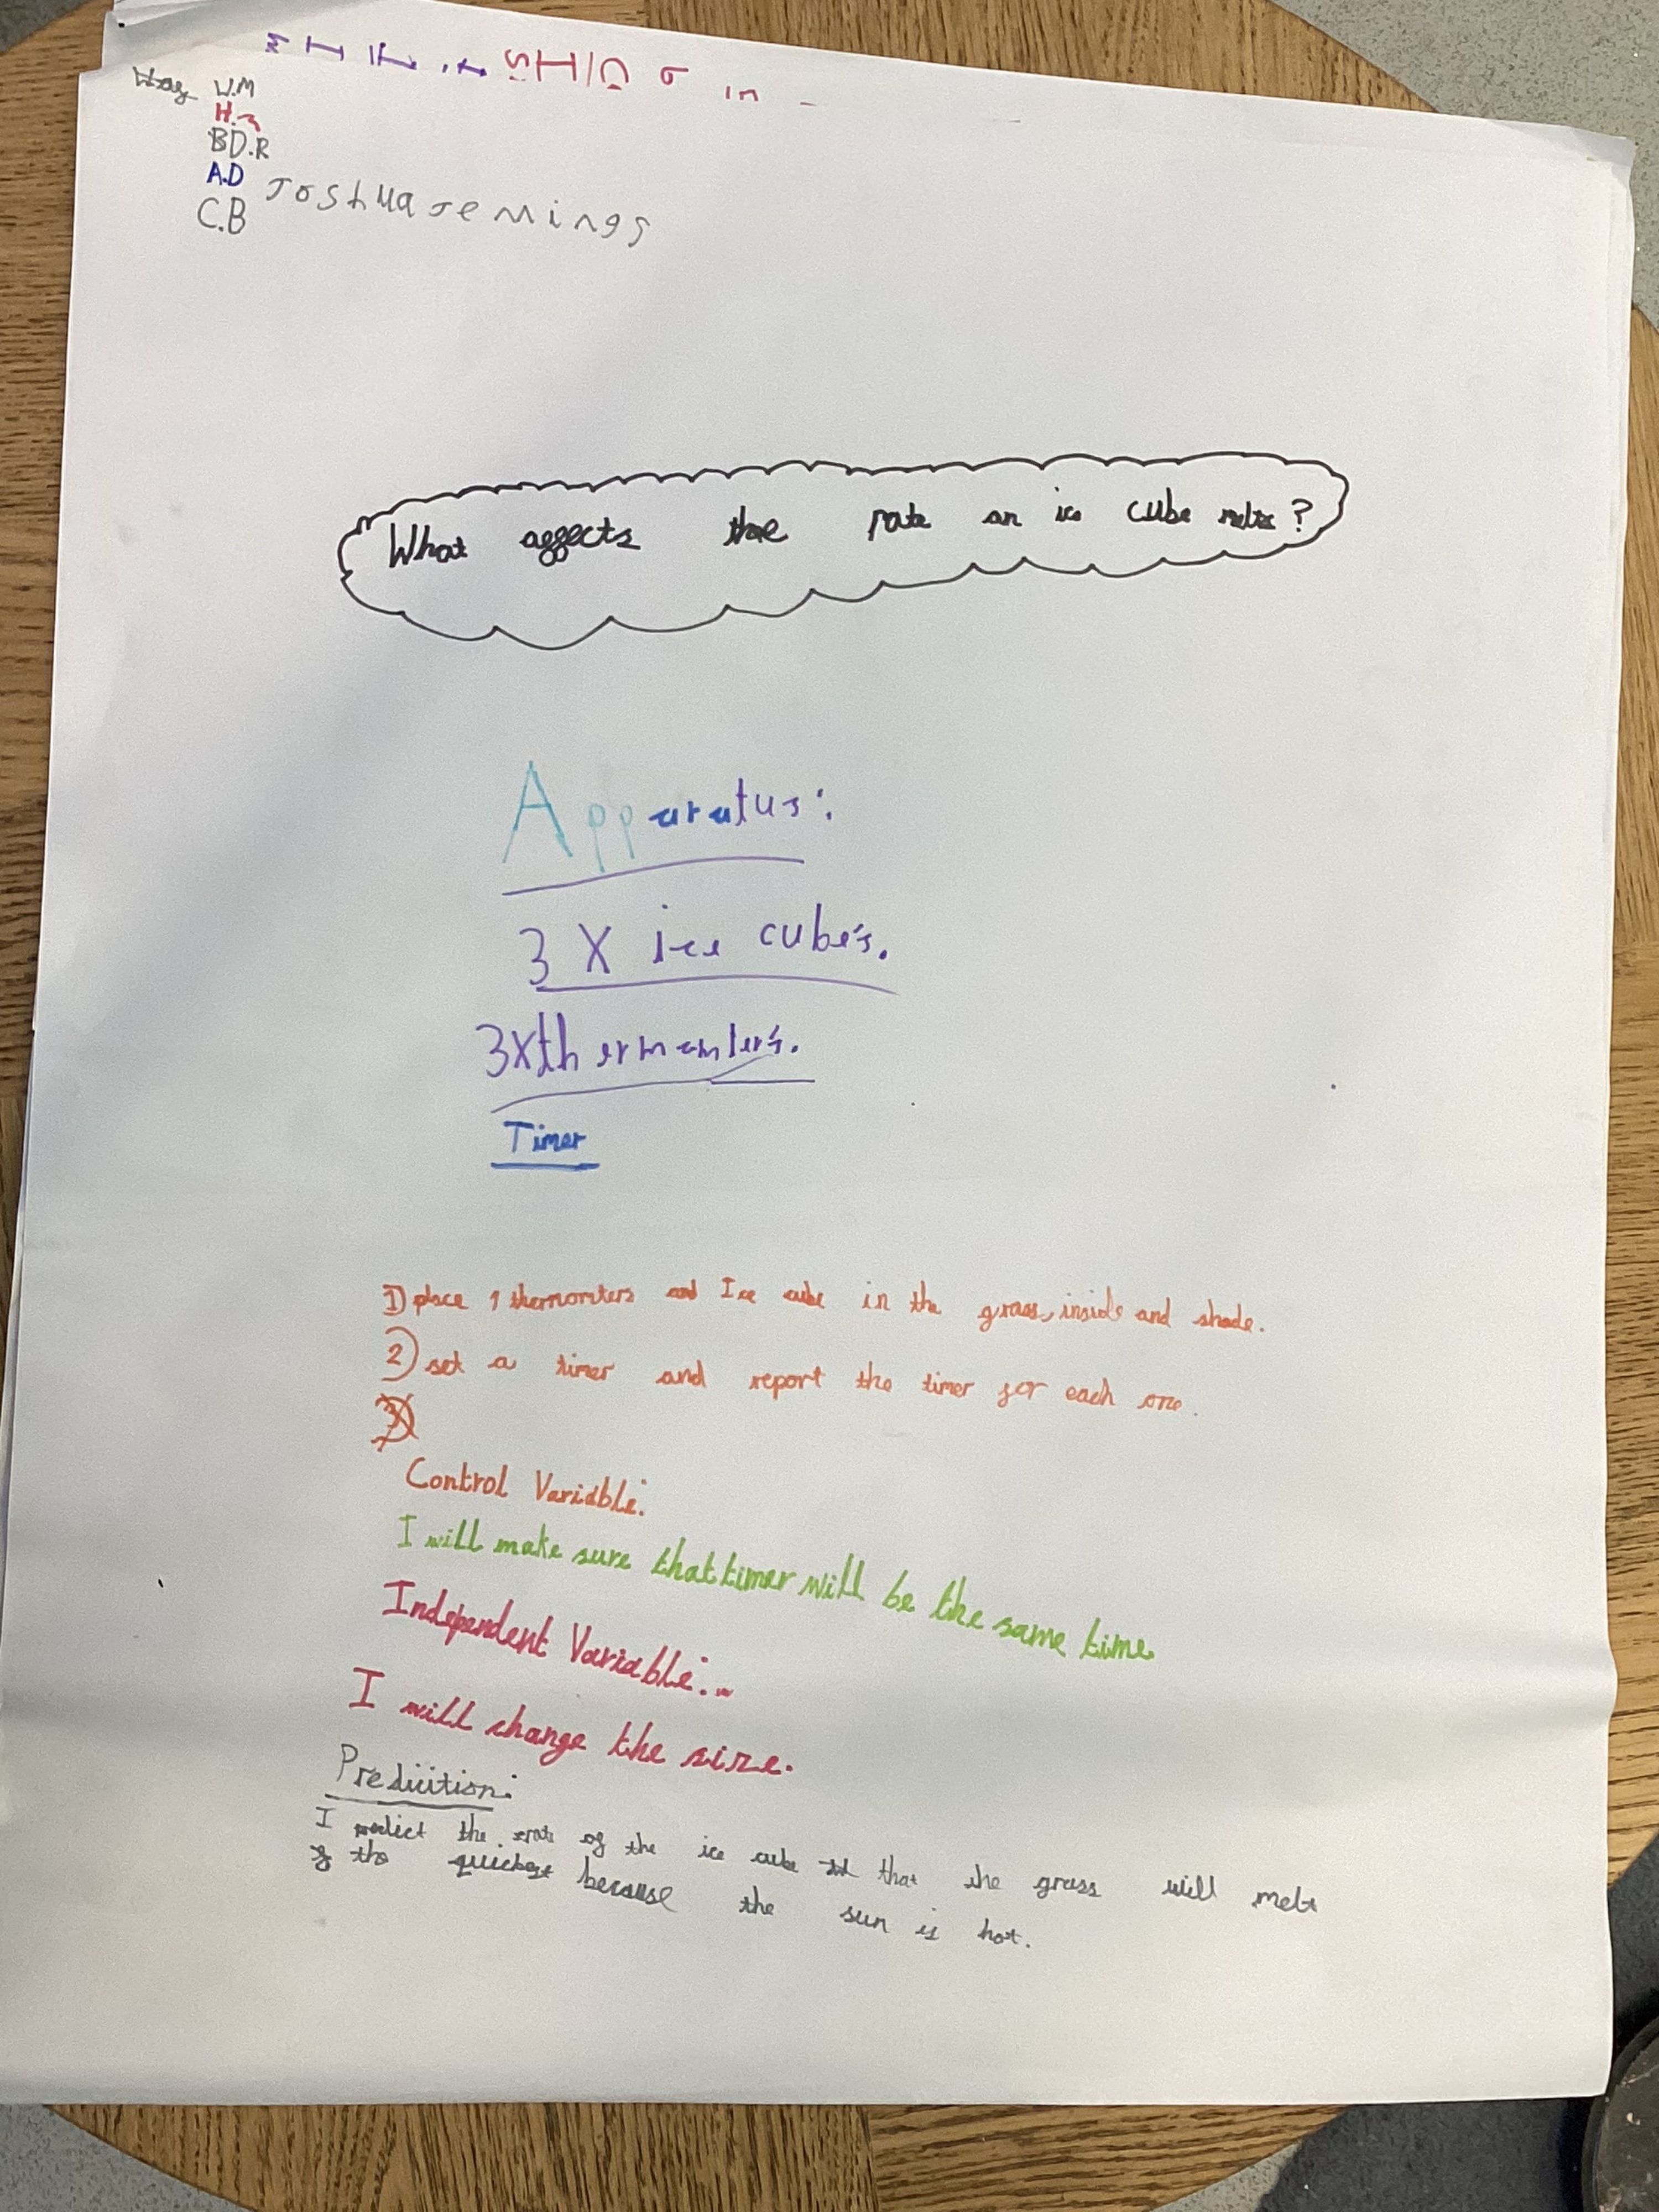 W.M
H.
B.D.R
A.D
C.B
Joshua Jemings
What affects the rate an ice cube melts?
Apparatus:
3 X ice cube's.
3X thermemters.
Timer
1) place 1 thermomters and Ice cube in the grass, inside and shade.
2) set a timer and report the timer for each one.
3)
Control Variable:
I will make sure that timer will be the same time.
Independent Variable:-
I will change the size.
Prediition:
I predict the rate of the ice cube that the grass will melt
the quickest because the sun is hot.